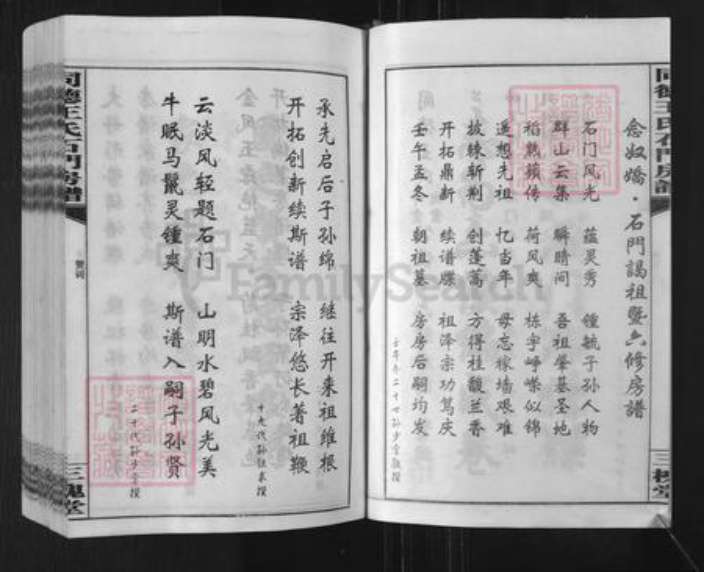 同德王氏石門房譜
三槐堂
念奴嬌·石門謁祖暨六修房譜
石门风光 蕴灵秀 锺毓子孙人物
群山云集 瞬睛间 吾祖肇基圣地
稻熟蘋传 荷风爽 栋宇峥嵘似锦
遥想先祖 忆当年 毋忘稼墙艰难
披棘斩荆 创蓬蒿 方得桂馥兰香
开拓鼎新 续谱牒 祖泽宗功笃庆
壬午孟冬 朝祖墓 房房后嗣均发
承先启后子孙绵 继往开来祖维根
开拓创新续斯谱 宗泽悠长著祖鞭
云淡风轻题石门 山明水碧风光美
牛眠马鬣灵锺爽 斯谱入嗣子孙贤
同德王氏石門房譜
赞词
三槐堂
FamilySearch